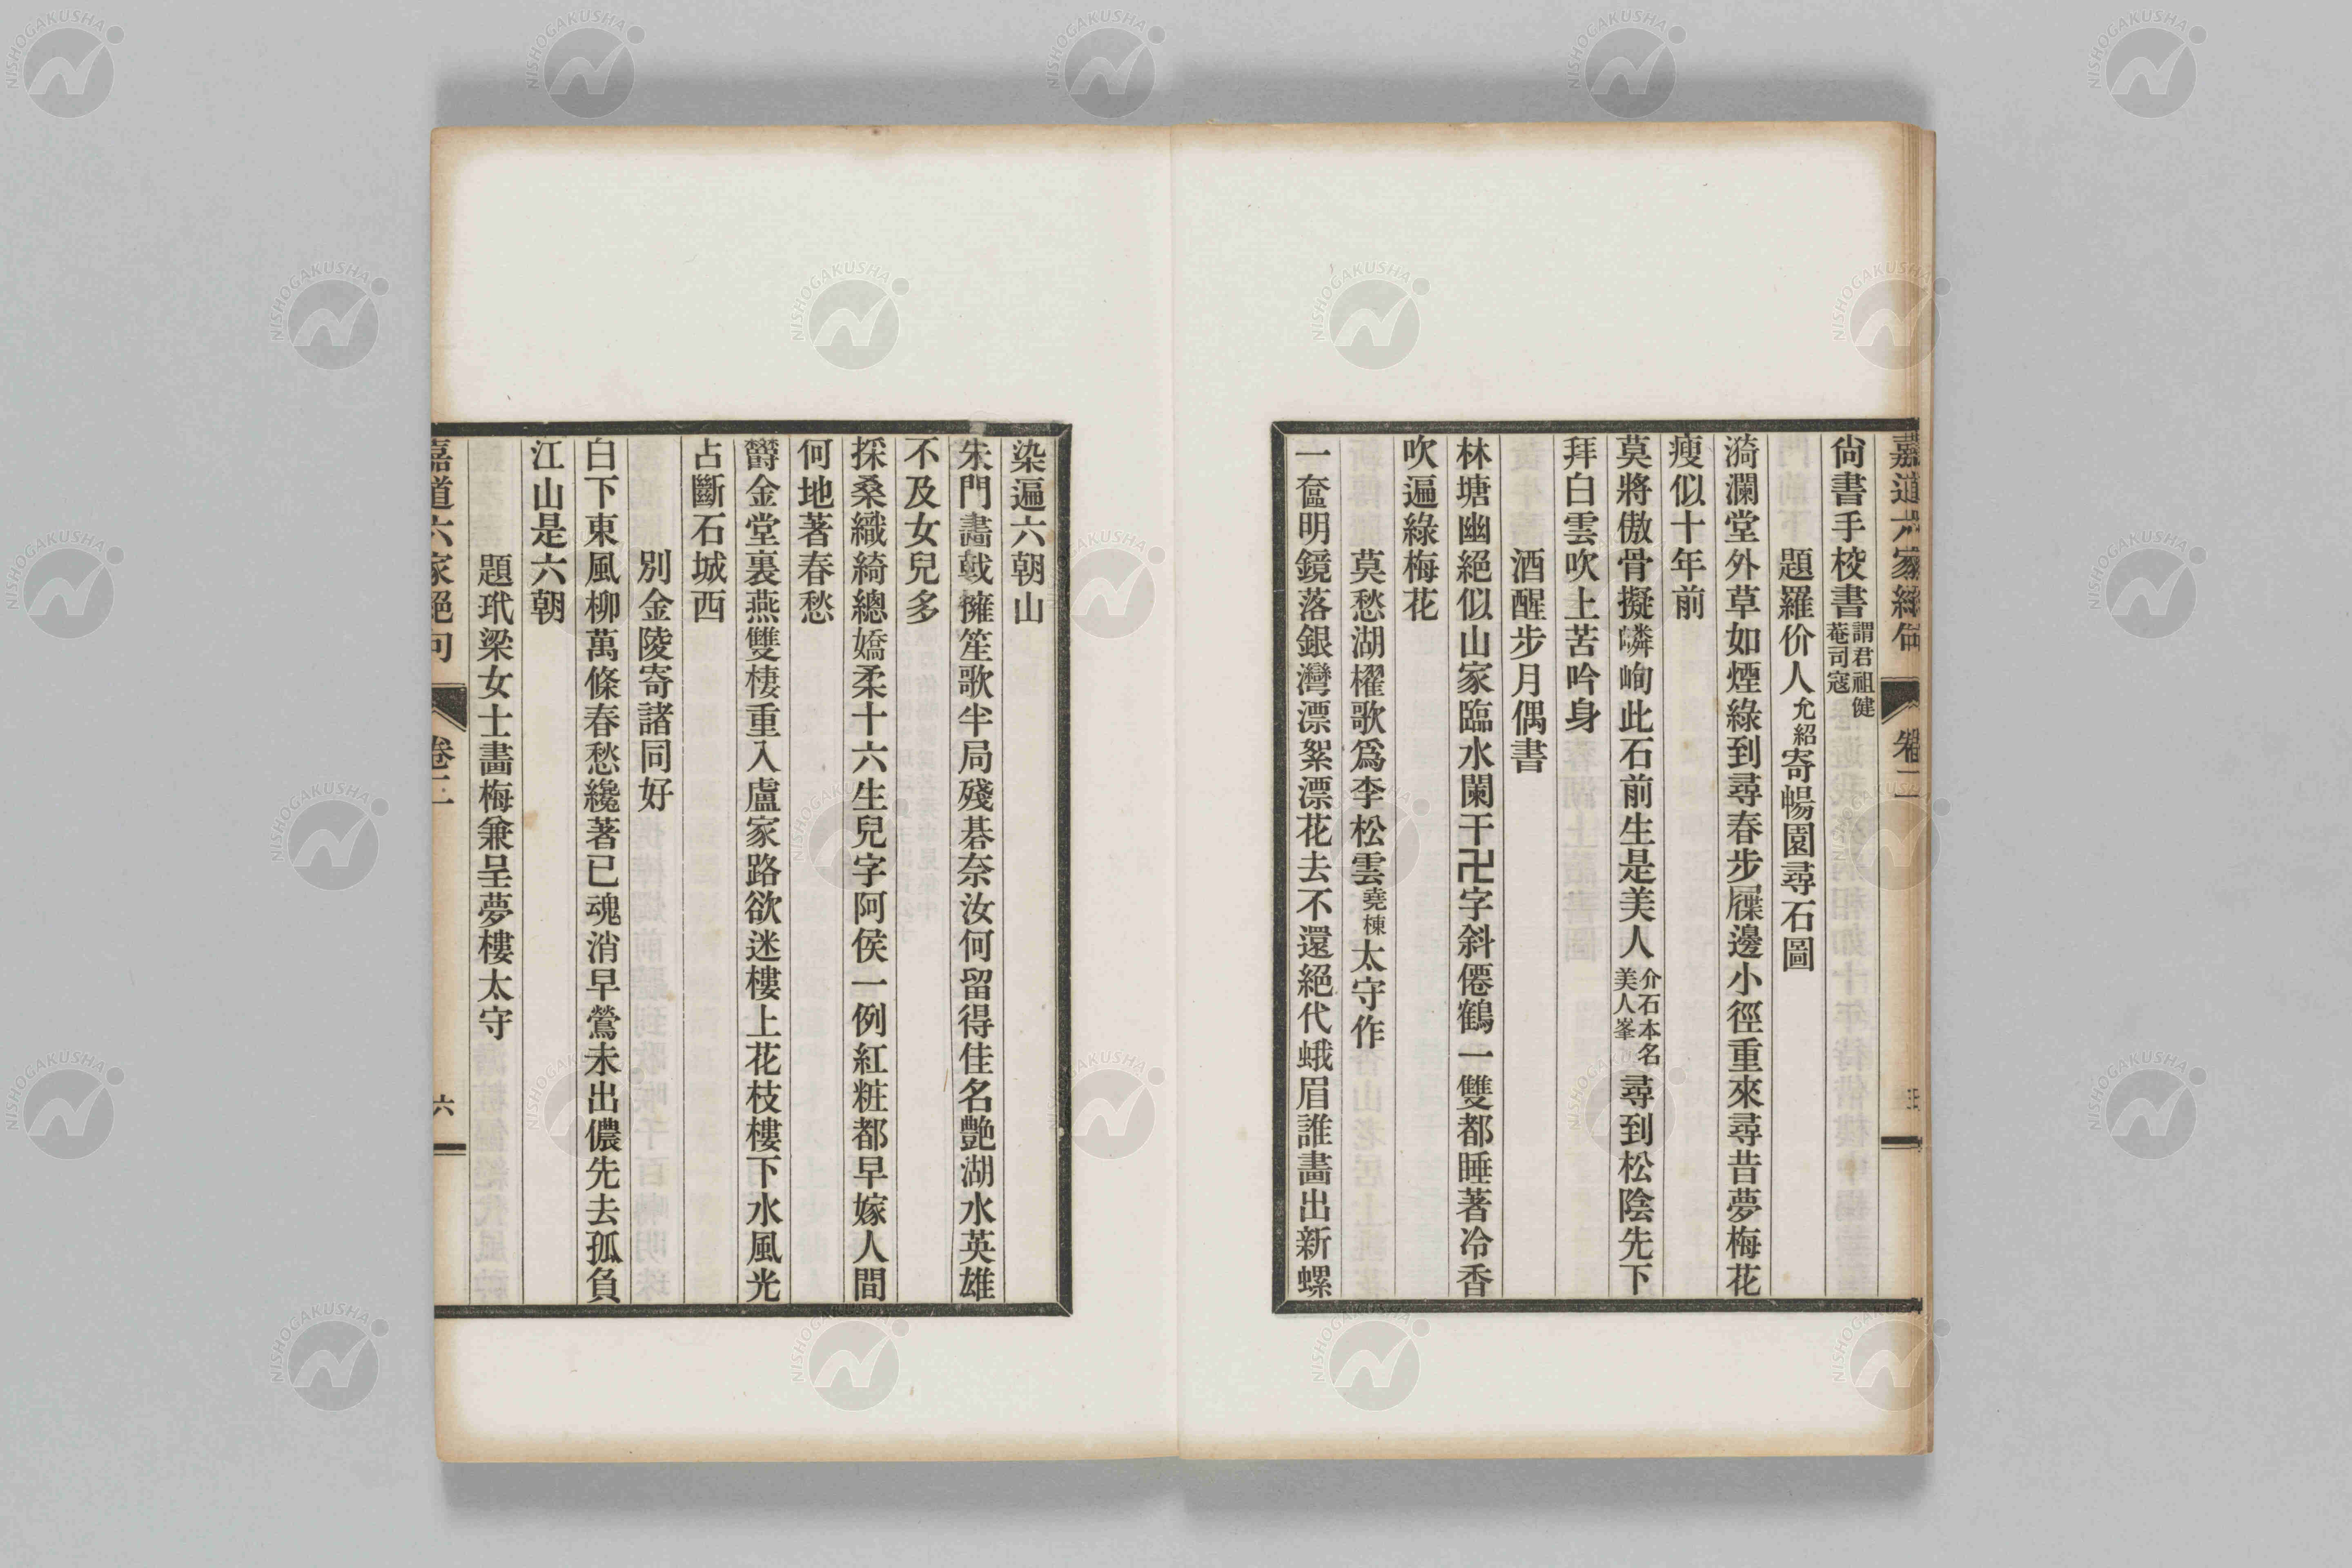 嘉道六家絕句 卷二 五
尙書手校書謂君祖健菴司寇
題羅价人允紹寄暢園尋石圖
漪瀾堂外草如煙綠到尋春步屧邊小徑重來尋昔夢梅花
瘦似十年前
莫將傲骨擬嶙峋此石前生是美人介石本名美人峯尋到松陰先下
拜白雲吹上苦吟身
酒醒步月偶書
林塘幽絕似山家臨水闌干卍字斜僊鶴一雙都睡著冷香
吹遍綠梅花
莫愁湖櫂歌爲李松雲堯棟太守作
一奩明鏡落銀灣漂絮漂花去不還絕代蛾眉誰畫出新螺
染遍六朝山
朱門畫戟擁笙歌半局殘碁奈汝何留得佳名艷湖水英雄
不及女兒多
採桑織綺總嬌柔十六生兒字阿侯一例紅粧都早嫁人間
何地著春愁
鬱金堂裏燕雙棲重入盧家路欲迷樓上花枝樓下水風光
占斷石城西
別金陵寄諸同好
白下東風柳萬條春愁纔著已魂消早鶯未出儂先去孤負
江山是六朝
題玳梁女士畫梅兼呈夢樓太守
嘉道六家絕句 卷二 六
NISHOGAKUSHA